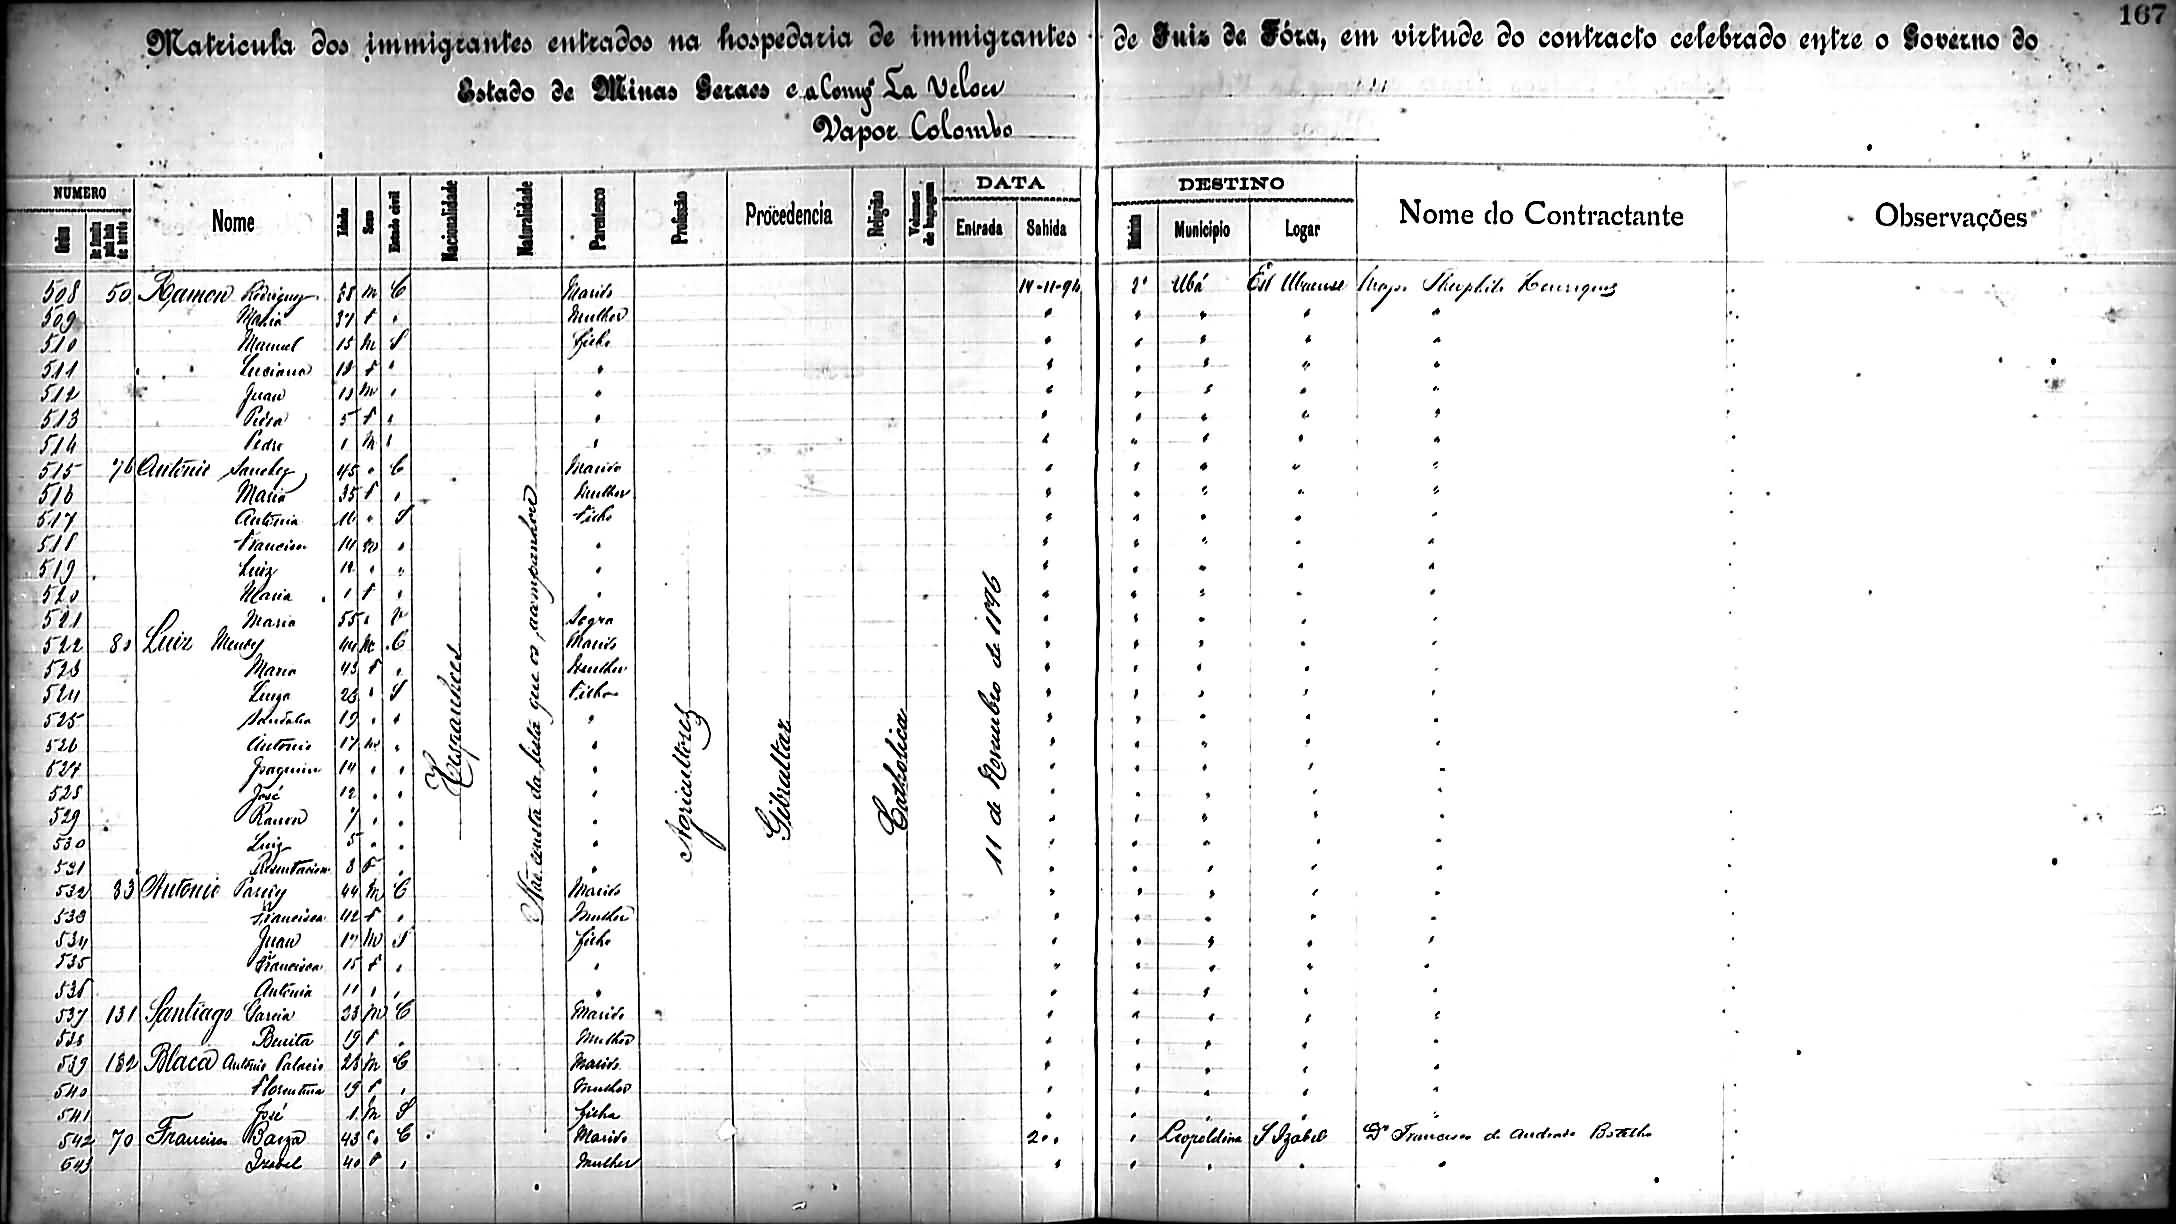 167
Matricula dos immigrantes entrados na hospedaria de immigrantes de Juiz de Fóra, em virtude do contracto celebrado entre o Governo do
Estado de Minas Geraes e a Comp La Veloce
Vapor Colombo
NUMERO DATA DESTINO
Ordem Nome Idade Sexo Estado civil Nacionalidade Naturalidade Parentesco Profissão Procedencia Religião Volumes de bagagem Entrada Sahida Municipio Logar Nome do Contractante Observações
Hespanhoes
Não consta da lista que os acompanhou
Agricultores
Gibraltar
Catholica
11 de Novembro de 1896
508 50 Ramon Rodriguez 38 M C Marido 14-11-96 2º Ubá Est Ubaense Major Theophilo Henriques
509 Maria 37 F " Mulher " " " " "
510 Manuel 15 M S Filho " " " " "
511 Luciana 18 F " " " " " " "
512 Juan 13 M " " " " " " "
513 Pedra 5 F " " " " " " "
514 Pedro 1 M " " " " " " "
515 76 Antonio Sanchez 45 " C Marido " " " " "
516 Maria 35 F " Mulher " " " " "
517 Antonia 16 " S Filho " " " " "
518 Francisco 14 M " " " " " " "
519 Luiz " " " " " " " "
520 Maria 1 F " " " " " " "
521 Maria 55 " V Sogra " " " " "
522 80 Luiz Mendez 44 M C Marido " " " " "
523 Maria 43 F " Mulher " " " " "
524 23 " S Filho " " " " "
525 19 " " " " " " " "
526 Antonio 17 M " " " " " " "
527 Joaquim 14 " " " " " " " "
528 José 12 " " " " " " " "
529 Ramon 7 " " " " " " " "
530 Luiz 5 " " " " " " " "
531 8 F " " " " " " "
532 83 Antonio 44 M C Marido " " " " "
533 Francisca 42 F " Mulher " " " " "
534 Juan 17 M S Filho " " " " "
535 Francisca 15 F " " " " " " "
536 Antonia 11 " " " " " " " "
537 131 Santiago Garcia 23 M C Marido " " " " "
538 Benita 19 F " Mulher " " " " "
539 132 Blaca Antonio Palacio 23 M C Marido " " " " "
540 Florentina 19 F " Mulher " " " " "
541 José 1 M S Filho " " " " "
542 70 Francisco Barza 43 " C Marido 20 " " Leopoldina S Izabel Dr Francisco de Andrade Botelho
543 Izabel 40 F " Mulher " " " " "